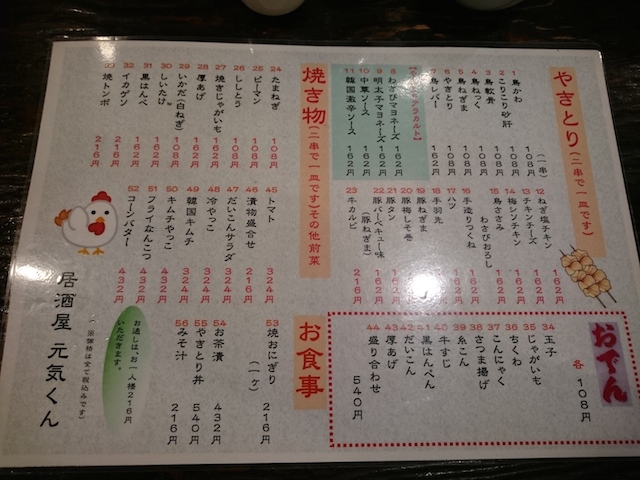 やきとり(二串で一皿です)
(一串)
1 鳥かわ 108円
2 こりこり砂肝 108円
3 鳥軟骨 108円
4 鳥ねっく 108円
5 鳥ねぎま 108円
6 やきとり 108円
7 鳥レバー 162円
8 わさびマヨネーズ 162円
9 明太子マヨネーズ 162円
10 中華ソース 162円
11 韓国激辛ソース 162円
12 ねぎ塩チキン
13 チキンチーズ
14 梅シソチキン
15 鳥ささみ わさびおろし
16 手造りつくね
17 ハツ
18 手羽先
19 豚ねぎま
20 豚梅しそ巻
21 豚タン
22 豚バーベキュー味(豚ねぎま)
23 牛カルビ
焼き物(二串で一皿です)その他前菜
24 たまねぎ 108円
25 ピーマン 108円
26 ししとう 108円
27 焼きじゃがいも 108円
28 厚あげ 108円
29 いかだ(白ねぎ) 108円
30 しいたけ 162円
31 黒はんぺ 162円
32 イカゲソ 216円
33 焼トンボ 216円
45 トマト 324円
46 漬物盛合せ 216円
47 だいこんサラダ 324円
48 冷やっこ 324円
49 韓国キムチ 324円
50 キムチやっこ 432円
51 フライなんこつ 432円
52 コーンバター 432円
おでん
各108円
34 玉子
35 じゃがいも
36 ちくわ
37 こんにゃく
38 さつま揚げ
39 糸こん
40 牛すじ
41 黒はんぺん
42 だいこん
43 厚あげ
44 盛り合わせ 540円
お食事
53 焼おにぎり(一ヶ) 216円
54 お茶漬 432円
55 やきとり丼 540円
56 みそ汁 216円
お通しは、お一人様216円
いただきます。
(※価格は全て税込みです)
居酒屋 元気くん